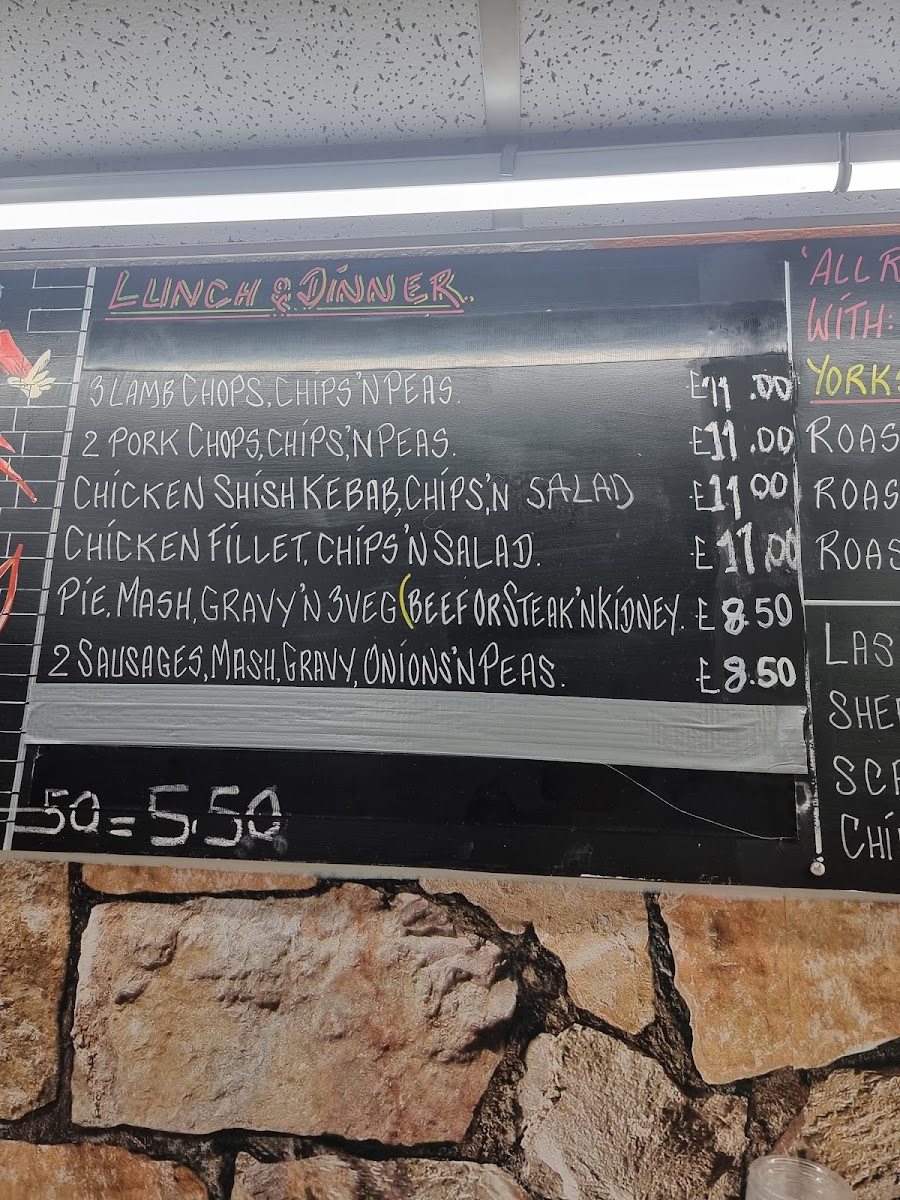 LUNCH & DINNER..
3 LAMB CHOPS, CHIPS 'N PEAS. £11.00
2 PORK CHOPS, CHIPS, 'N PEAS. £11.00
CHICKEN SHISH KEBAB, CHIPS, 'N SALAD £11.00
CHICKEN FILLET, CHIPS 'N SALAD. £11.00
PIE, MASH, GRAVY 'N 3 VEG (BEEF OR STEAK 'N KIDNEY. £8.50
2 SAUSAGES, MASH, GRAVY, ONIONS 'N PEAS. £8.50
50 = 5.50
'ALL R
WITH:
YORKS
ROAS
ROAS
ROAS
LAS
SHE
SCA
CHI